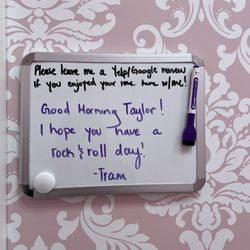 Please leave me a Yelp/Google review
if you enjoyed your time here w/me!
Good Morning Taylor!
I hope you have a
rock & roll day!
-Tram